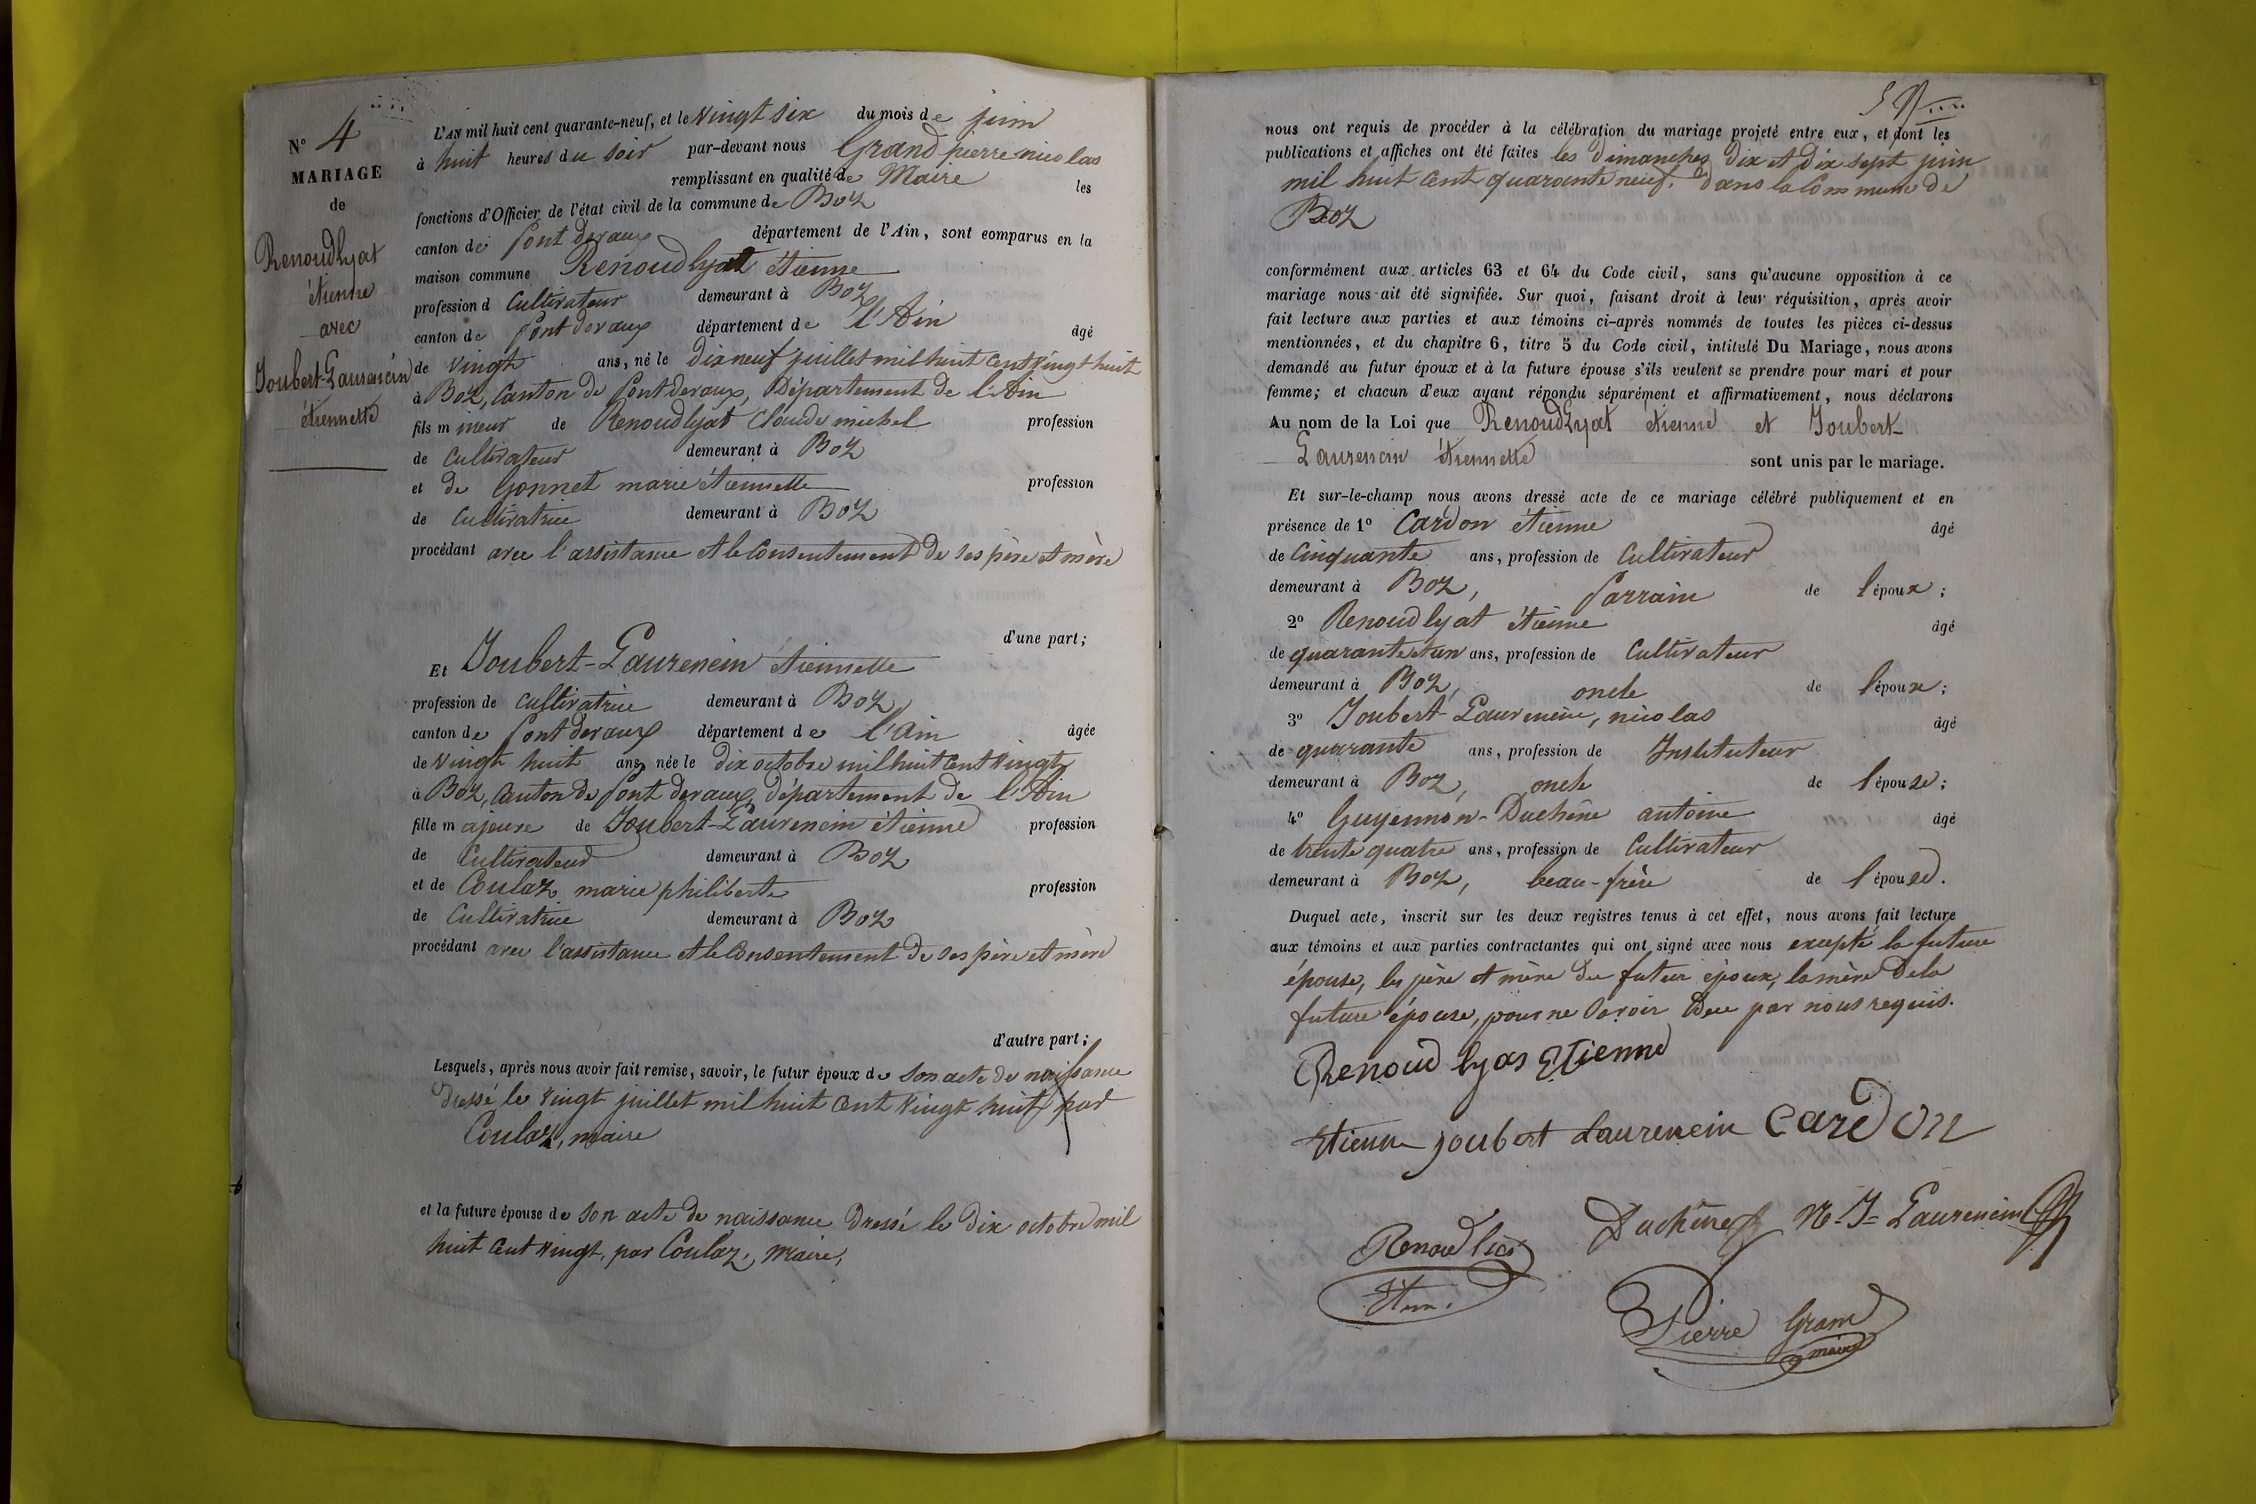 N° 4
MARIAGE
de
Renoud lyat
étienne
avec
Joubert-Laurencin
étiennette
L'AN mil huit cent quarante-neuf, et le vingt six du mois de juin
à huit heures du soir par-devant nous Grand pierre nicolas
remplissant en qualité de Maire les
fonctions d'Officier de l'état civil de la commune de Boz
canton de Pont devaux département de l'Ain, sont comparus en la
maison commune Renoud lyat étienne
profession d Cultivateur demeurant à Boz
canton de Pont devaux département de l'Ain âgé
de vingt ans, né le dix neuf juillet mil huit cent vingt huit
à Boz, Canton de Pont devaux, Département de l'Ain
fils mineur de Renoud lyat Claude michel profession
de Cultivateur demeurant à Boz
et de Gonnet marie étiennette profession
de Cultivatrice demeurant à Boz
procédant avec l'assistance et le Consentement de ses père et mère
d'une part;
Et Joubert-Laurencin étiennette
profession de cultivatrice demeurant à Boz
canton de Pont devaux département de l'Ain âgée
de vingt huit ans, née le dix octobre mil huit cent vingt
à Boz, Canton de Pont devaux, département de l'Ain
fille majeure de Joubert-Laurencin étienne profession
de Cultivateur demeurant à Boz
et de Coulaz marie philiberte profession
de Cultivatrice demeurant à Boz
procédant avec l'assistance et le Consentement de ses père et mère
d'autre part;
Lesquels, après nous avoir fait remise, savoir, le futur époux de son acte de naissance
Dressé le vingt juillet mil huit cent vingt huit par
Coulaz, maire
et la future épouse de son acte de naissance Dressé le dix octobre mil
huit cent vingt, par Coulaz, maire,
nous ont requis de procéder à la célébration du mariage projeté entre eux, et dont les
publications et affiches ont été faites les dimanches dix et dix sept juin
mil huit cent quarante neuf, dans la Commune de
Boz
conformément aux articles 63 et 64 du Code civil, sans qu'aucune opposition à ce
mariage nous ait été signifiée. Sur quoi, faisant droit à leur réquisition, après avoir
fait lecture aux parties et aux témoins ci-après nommés de toutes les pièces ci-dessus
mentionnées, et du chapitre 6, titre 5 du Code civil, intitulé Du Mariage, nous avons
demandé au futur époux et à la future épouse s'ils veulent se prendre pour mari et pour
femme; et chacun d'eux ayant répondu séparément et affirmativement, nous déclarons
Au nom de la Loi que Renoud Lyat étienne et Joubert-
Laurencin étiennette sont unis par le mariage.
Et sur-le-champ nous avons dressé acte de ce mariage célébré publiquement et en
présence de 1° Cardon étienne âgé
de Cinquante ans, profession de Cultivateur
demeurant à Boz, Parrain de l'époux;
2° Renoud lyat étienne âgé
de quarante et un ans, profession de Cultivateur
demeurant à Boz, oncle de l'époux;
3° Joubert-Laurencin, nicolas âgé
de quarante ans, profession de Instituteur
demeurant à Boz, oncle de l'épouse;
4° Guyennon-Duchêne antoine âgé
de trente quatre ans, profession de Cultivateur
demeurant à Boz, beau-frère de l'épouse.
Duquel acte, inscrit sur les deux registres tenus à cet effet, nous avons fait lecture
aux témoins et aux parties contractantes qui ont signé avec nous excepté la future
épouse, les père et mère du futur époux, la mère de la
future épouse, pour ne savoir De ce par nous requis.
Renoud lyas Etienne
Etienne joubert Laurencin Cardon
Duchêne N-J-Laurencin
Renoud lias
Etien.
Pierre Grand
maire